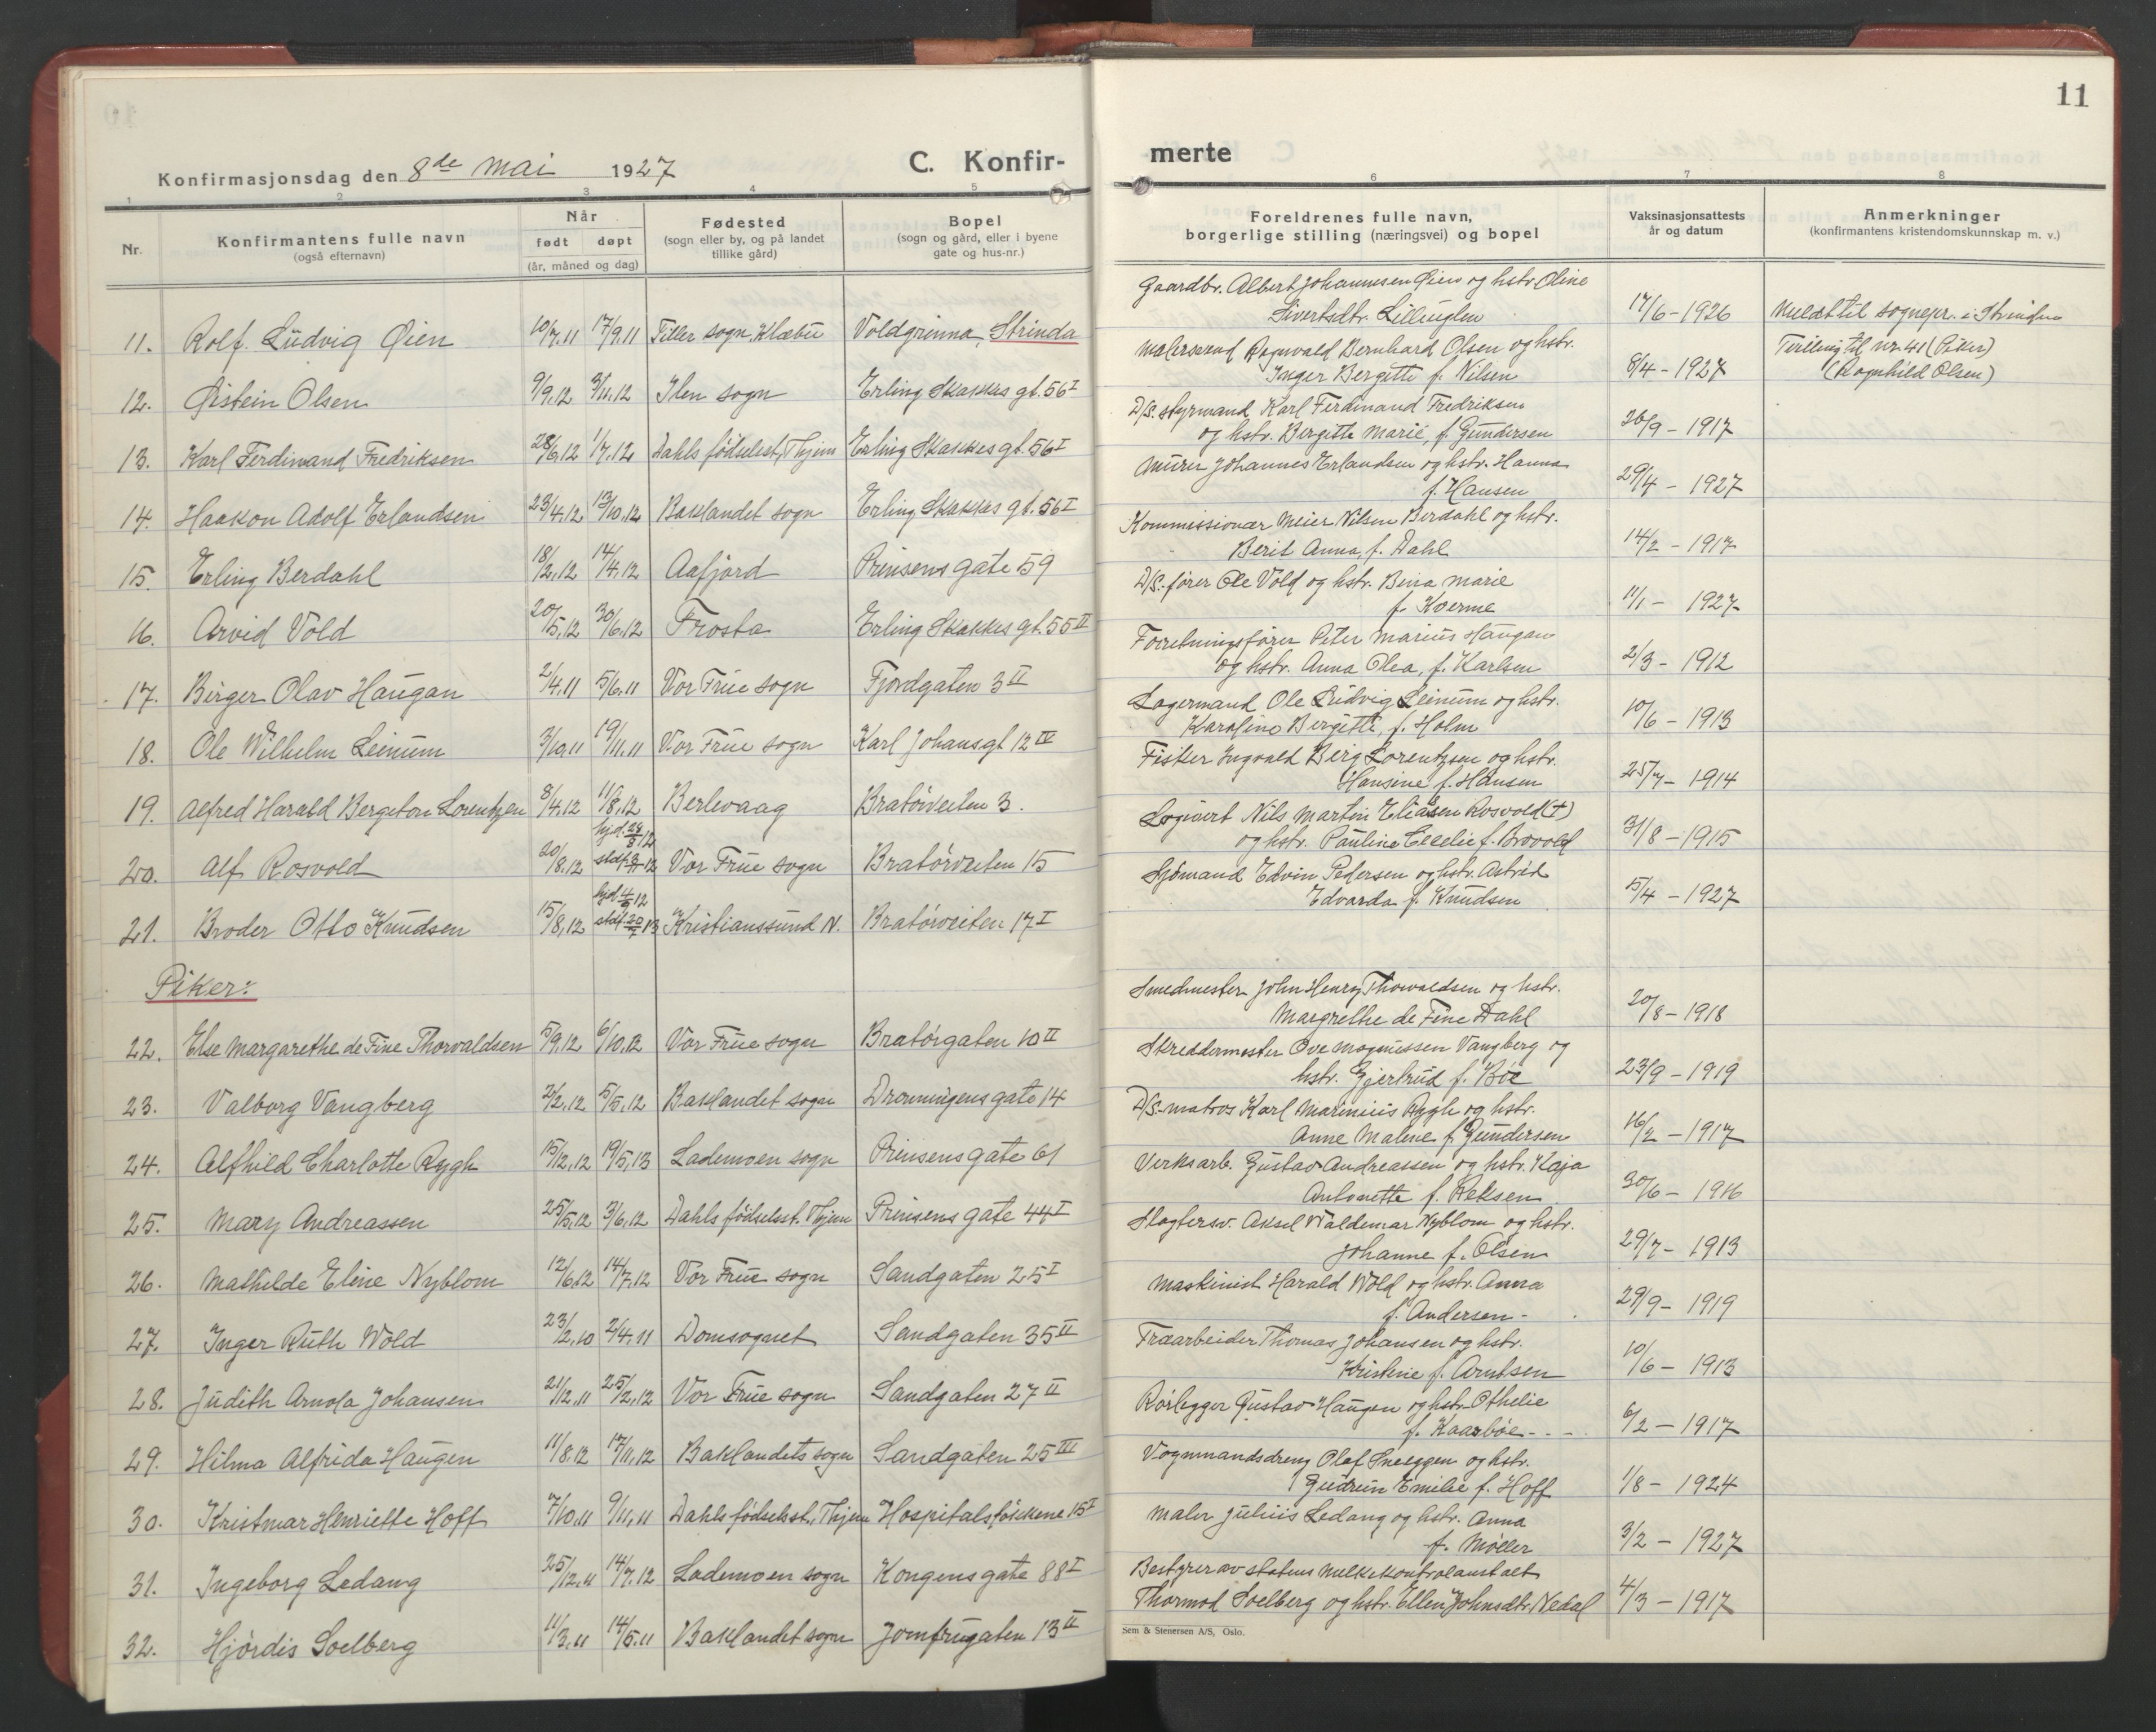 11
Konfirmasjonsdag den 8de mai 1927
C. Konfir-
merte
1 2 3 4 5 6 7 8
Nr.
Konfirmantens fulle navn
(også efternavn)
Når
født døpt
(år, måned og dag)
Fødested
(sogn eller by, og på landet
tillike gård)
Bopel
(sogn og gård, eller i byene
gate og hus-nr.)
Foreldrenes fulle navn,
borgerlige stilling (næringsvei) og bopel
Vaksinasjonsattests
år og datum
Anmerkninger
(konfirmantens kristendomskunnskap m. v.)
11. Rolf Ludvig Øien 10/7.11 17/9.11 Tiller sogn, Klæbu Voldgrinna, Strinda
Gaardbr. Albert Johannesen Øien og hstr. Oline
Sivertsdtr. Lilleuglen 17/6 - 1926 til sognepr. i Strinda
12. Øistein Olsen 9/9.12 3/11.12 Ilen sogn Erling Skakkes gt. 56 I
Malersvend Ragnvald Bernhard Olsen og hstr.
Inger Bergitte f. Nilsen 8/4 - 1927 Tvilling til nr. 41 (Piker)
(Ragnhild Olsen)
13. Karl Ferdinand Fredriksen 28/6.12 1/7.12 Dahls fødselsst., Thjem Erling Skakkes gt. 56 I
D/S. styrmand Karl Ferdinand Fredriksen
og hstr. Bergitte Marie, f. Gundersen 26/9 - 1917
14. Haakon Adolf Erlandsen 23/4.12 13/10.12 Baklandet sogn Erling Skakkes gt. 56 I
Murer Johannes Erlandsen og hstr. Hanna
f. Hansen 29/4 - 1927
15. Erling Berdahl 18/2.12 14/4.12 Aafjord Prinsens gate 59
Kommissionær Meier Nilsen Berdahl og hstr.
Berit Anna, f. Dahl 14/2 - 1917
16. Arvid Vold 20/5.12 30/6.12 Frosta Erling Skakkes gt. 55 II
D/S. fører Ole Vold og hstr. Bina Marie
f. Kverme 11/1 - 1927
17. Birger Olav Haugan 2/4.11 5/6.11 Vor Frue sogn Fjordgaten 3 II
Forretningsfører Peter Marius Haugan
og hstr. Anna Olea, f. Karlsen 2/3 - 1912
18. Ole Wilhelm Leinum 3/10.11 19/11.11 Vor Frue sogn Karl Johans gt 12 IV
Lagermand Ole Ludvig Leinum og hstr.
Karoline Bergitte, f. Holm 10/6 - 1913
19. Alfred Harald Bergeton Lorentzen 8/4.12 11/8.12 Berlevaag Bratørveiten 3.
Fisker Ingvald Berg Lorentzen og hstr.
Hansine f. Hansen 25/7 - 1914
20. Alf Rosvold 20/8.12 hjd. 28/8 12 stdf. 3/11 12 Vor Frue sogn Bratørveiten 15
Logivert Nils Martin Eliasen Rosvold (+)
og hstr. Pauline Cecelie f. Brovold 31/8 - 1915
21. Broder Otto Knudsen 15/8.12 hjd. 4/9 12 stdf. 20/7 13 Kristianssund N. Bratørveiten 17 I
Sjømand Edvin Pedersen og hstr. Astrid
Edvarda f. Knudsen 5/4 - 1927
Piker:
22. Else Margarethe de Fine Thorvaldsen 5/9.12 6/10.12 Vor Frue sogn Bratørgaten 10 II
Smedmester John Henry Thorvaldsen og hstr.
Margrethe de Fine Dahl 20/8 - 1918
23. Valborg Vangberg 2/2.12 5/5.12 Baklandet sogn Dronningens gate 14
Skreddermester Ove Magnussen Vangberg og
hstr. Gjertrud f. Bøe 23/9 - 1919
24. Alfhild Charlotte Rygh 15/12.12 19/5.13 Lademoen sogn Prinsens gate 61
D/S-matros Karl Marinius Rygh og hstr.
Anne Malene f. Gundersen 16/2 - 1917
25. Mary Andreassen 25/5.12 3/6.12 Dahls fødselsst. Thjem Prinsens gate 44 I
Verksarb. Gustav Andreassen og hstr. Kaja
Antonette f. Reksen 30/6 - 1916
26. Mathilde Eline Nyblom 12/6.12 14/7.12 Vor Frue sogn Sandgaten 25 I
Slagtersv. Aksel Waldemar Nyblom og hstr.
Johanne f. Olsen 29/7 - 1913
27. Inger Ruth Wold 23/2.10 2/4.11 Domsognet Sandgaten 35 II
Maskinist Harald Wold og hstr. Anna
f. Andersen - 29/9 - 1919
28. Judith Arnola Johansen 21/12.11 25/2.12 Vor Frue sogn Sandgaten 27 II
Træarbeider Thomas Johansen og hstr.
Kristine f. Arntsen 10/6 - 1913
29. Hilma Alfrida Haugen 11/8.12 17/11.12 Baklandets sogn Sandgaten 25 III
Rørlegger Gustav Haugen og hstr. Othelie
f. Kaarbøe - - - 6/2 - 1917
30. Kristmar Henriette Hoff 7/10.11 9/11.11 Dahls fødselsst., Thjem Hospitalsløkkene 15 I
Vognmandsdreng Olaf Sneeggen og hstr.
Gudrun Emilie f. Hoff 1/8 - 1924
31. Ingeborg Ledang 25/12.11 14/7.12 Lademoen sogn Kongens gate 88 I
Maler Julius Ledang og hstr. Anna
f. Møller 3/2 - 1927
32. Hjørdis Soelberg 11/3.11 14/5.11 Baklandet sogn Jomfrugaten 13 II
Bestyrer av statens melkekontrolanstalt
Thormod Soelberg og hstr. Ellen Johnsdtr. Nedal 4/3 - 1917
Sem & Stenersen A/S, Oslo.